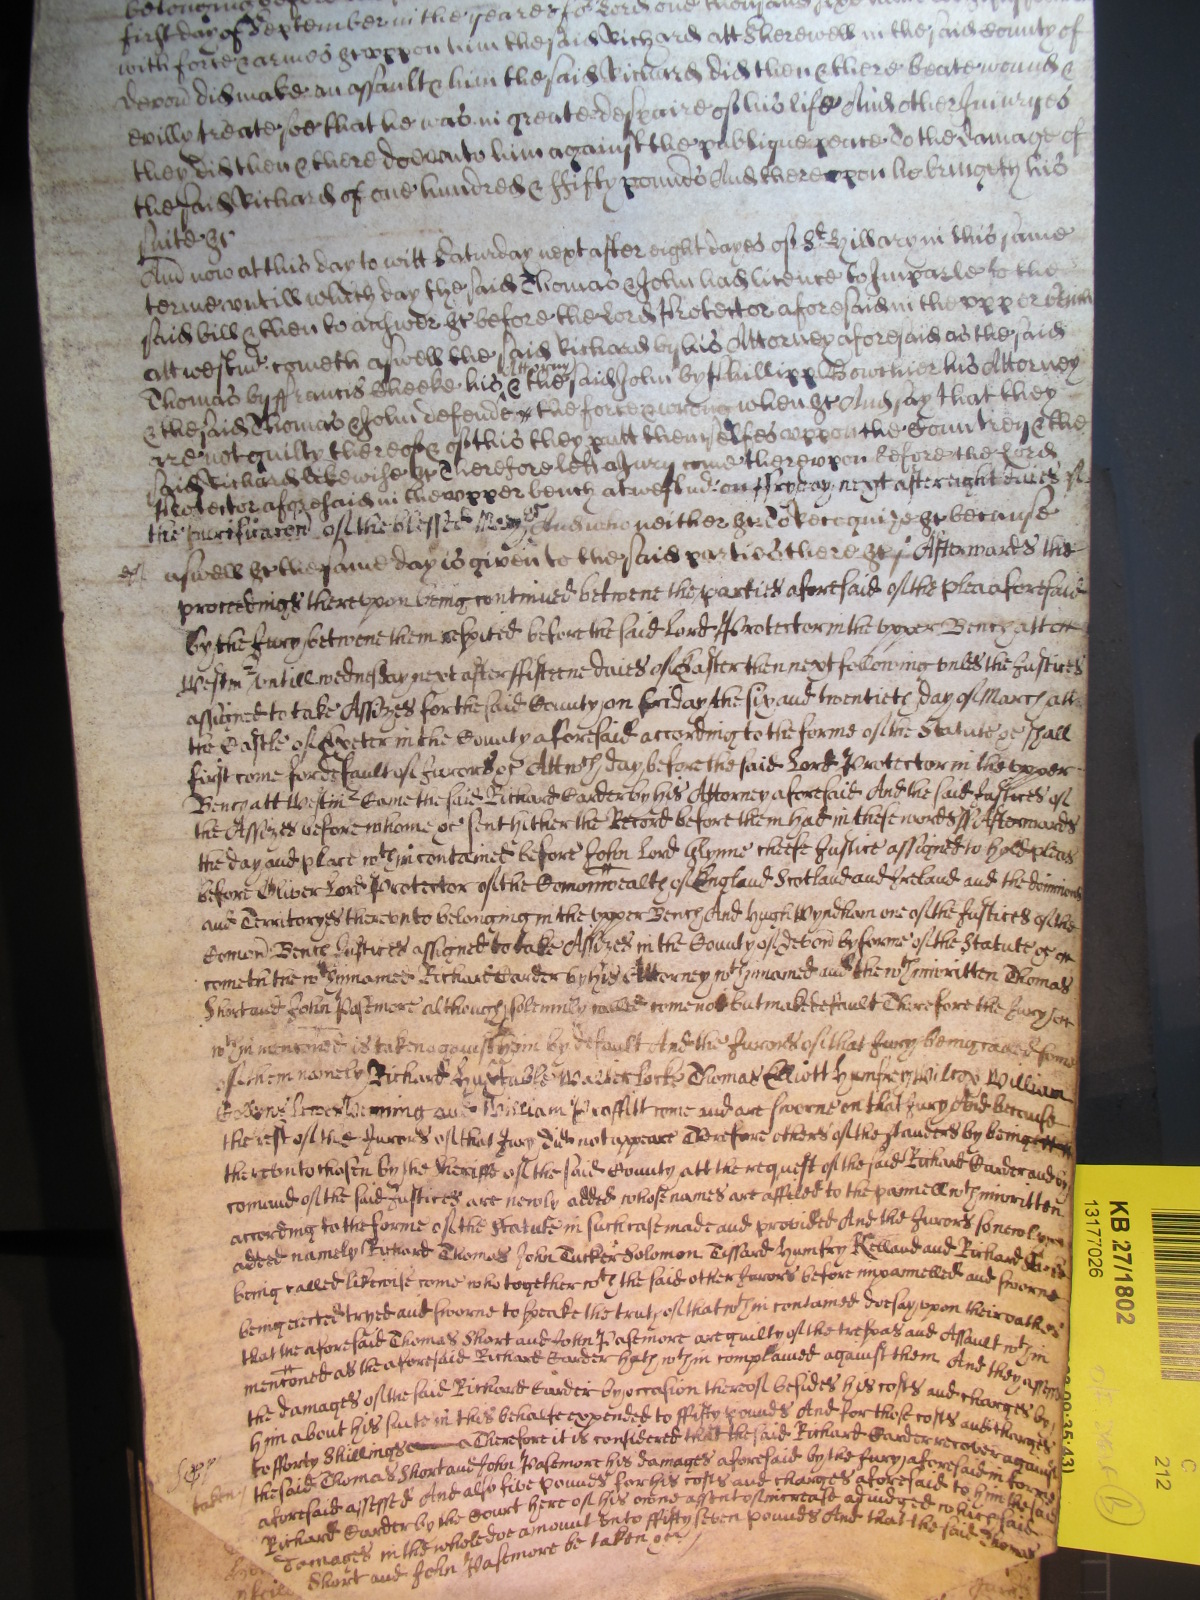 first day of September in the yeare of o Lord one thousand
with force & armes &c uppon him the said Richard att Sherewell in the said County of
Devon did make an assault & him the said Richard did then & there beate wound &
evilly treate soe that he was in greate despaire of his life And other Injuryes
they did then & there doe unto him against the publique peace To the damage of
the said Richard of one hundred & ffifty pounds And thereupon he bringeth his
suite &c
And now at this day to witt Saturday next after eight dayes of St Hillary in this same
terme untill which day the said Thomas & John had licence to Imparle to the
said bill & then to answer &c before the Lord Protector aforesaid in the upper bench
att westmr cometh aswell the said Richard by his Attorney aforesaid as the said
Attorney
Thomas by ffrancis Cheeke his & the said John by Phillipp Bowchier his Attorney
& the said Thomas & John defende the force & wrong when &c And say that they
are not guilty thereof & of this they putt themselfes uppon the Countrey & the
said Richard likewise &c Therefore lett a Jury come thereupon before the Lord
Protector aforesaid in the upper bench at westmr on ffryday next after eight daies of
the purificacon of the blessed Mary And who neither &c To recognize &c because
aswell &c the same day is given to the said parties there &c / Afterwards the
proceedings thereupon being continued betweene the parties aforesaid of the plea aforesaid
by the Jury betwene them respited before the said Lord Protector in the upper Bench att
Westmr untill wednesday next after ffifteene daies of Easter then next following unles the Justices
assigned to take Assizes for the said County on Friday the six and twentieth day of March att
the Castle of Exeter in the County aforesaid according to the forme of the Statute &c shall
first come for default of Jurors &c Att wch day before the said Lord Protector in the upper
Bench att Westmr Came the said Richard Carder by his Attorney aforesaid And the said Justices of
the Assizes before whome &c sent hither the Record before them had in these words ss Afterwards
the day and place wthin contained before John Lord Glynne cheefe Justice assigned to hold pleas
before Oliver Lord Protector of the Comonwealth of England Scotland and Ireland and the dominions
and Territoryes thereunto belonging in the upper Bench And Hugh Wyndham one of the Justices of the
Comon Bench Justices assigned to take Assizes in the County of devon by forme of the Statute &c
cometh the wthinnamed Richard Carder by his Attorney wthinnamed and the wthinwritten Thomas
Short and John Pasemore although solemnly called come not but make default Therefore the Jury
wthin menconed is taken against them by default And the Jurors of that Jury being called some
of them namely Richard Huxtable Walter Locke Thomas Elliott Humfrey Wilcox William
and William Proffitt come and are sworne on that Jury And because
the rest of the Jurors of that Jury did not appeare Therefore others of the standers by being
thereunto chosen by the Sheriffe of the said County att the request of the said Richard Carder and by
comand of the said Justices are newly added whose names are affiled to the pannell wthinwritten
according to the forme of the Statute in such case made and provided And the Jurors soe newly
added namely Richard Thomas John Tucker Solomon Humfry Kelland and Richard
being called likewise come who together wth the said other Jurors before impannelled and sworne
being elected tryed and sworne to speake the truth of that wthin contained doe say upon their oathes
that the aforesaid Thomas Short and John Pasemore are guilty of the trespas and Assault wthin
menconed as the aforesaid Richard Carder hath wthin complained against them And they assesse
the damages of the said Richard Carder by occasion thereof besides his costs and charges by
him about his suite in this behalfe expended to ffifty pounds And for those costs and charges
to fforty Shillings Therefore it is considered that the said Richard Carder recover against
the said Thomas Short and John Pasemore his damages aforesaid by the Jury aforesaid in forme
aforesaid assessed And also five pounds for his costs and charges aforesaid to him the said
Richard Carder by the Court here of his owne assent of increase adiudged which said
Damages in the whole doe amount unto ffifty seven pounds And that the said Thomas
Short and John Pasemore be taken &c /
taken /
KB 27/1802
13177026
C
212